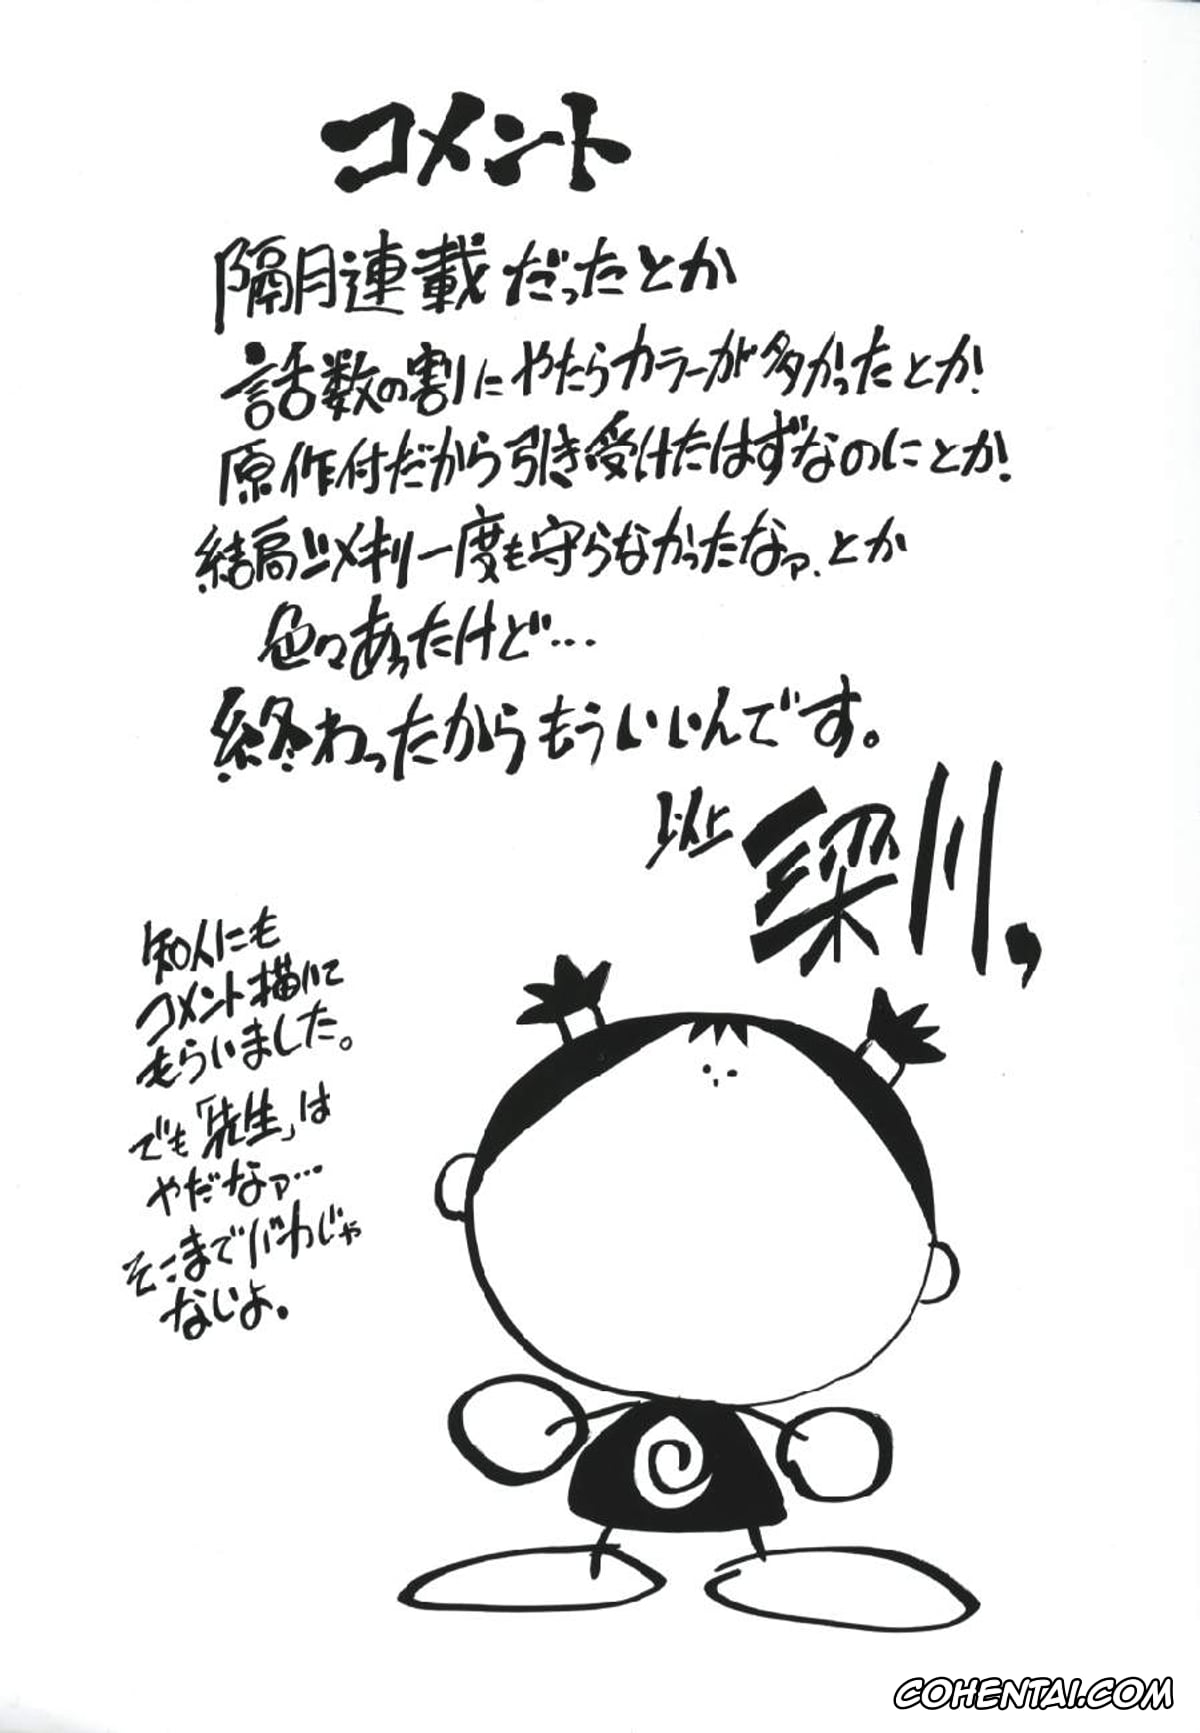 コメント
隔月連載だったとか
話数の割にやたらカラーが多かったとか!
原作付だから引き受けたはずなのにとか!
結局〆メキリ一度も守らなかったなァ、とか
色々あったけど…
終わったからもういいんです。
以上
梁川、
知人にも
コメント描いて
もらいました。
でも「先生」は
やだなァ…
そこまでバカじゃ
ないよ。
COHENTAI.COM